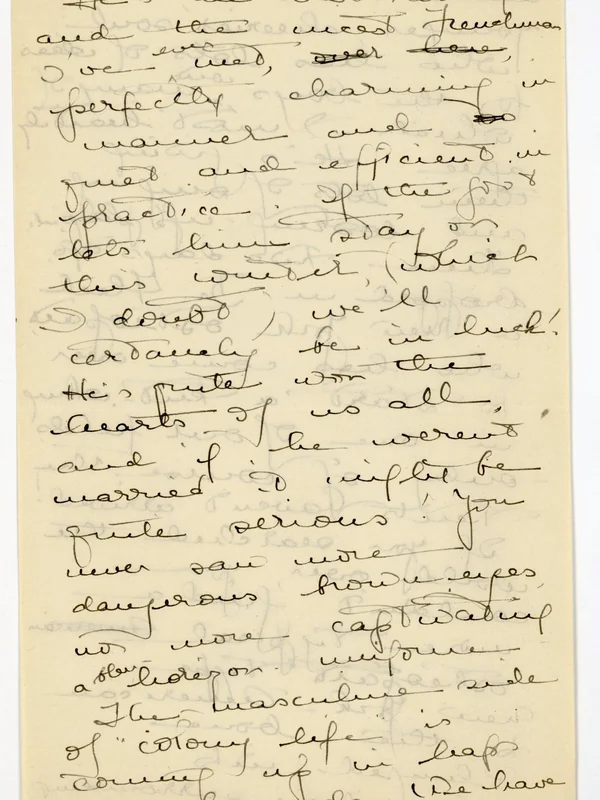 and the nicest Frenchman
I've ever met, over here,
perfectly charming in
manner and so
quiet and efficient in
practice. If the gov't
lets him stay on
this winter, (which
I doubt) we'll
certainly be in luck!
He's quite won the
hearts of us all,
and if he weren't
married I might be
quite serious! You
never saw more
dangerous brown eyes,
nor more captivating
a blue horizon uniform
The masculine side
of "colony life" is
coming up in
(We have